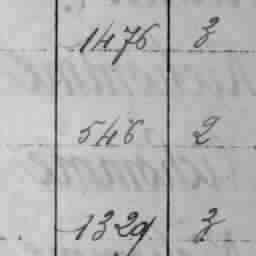 1476 3
546 2
1329 3